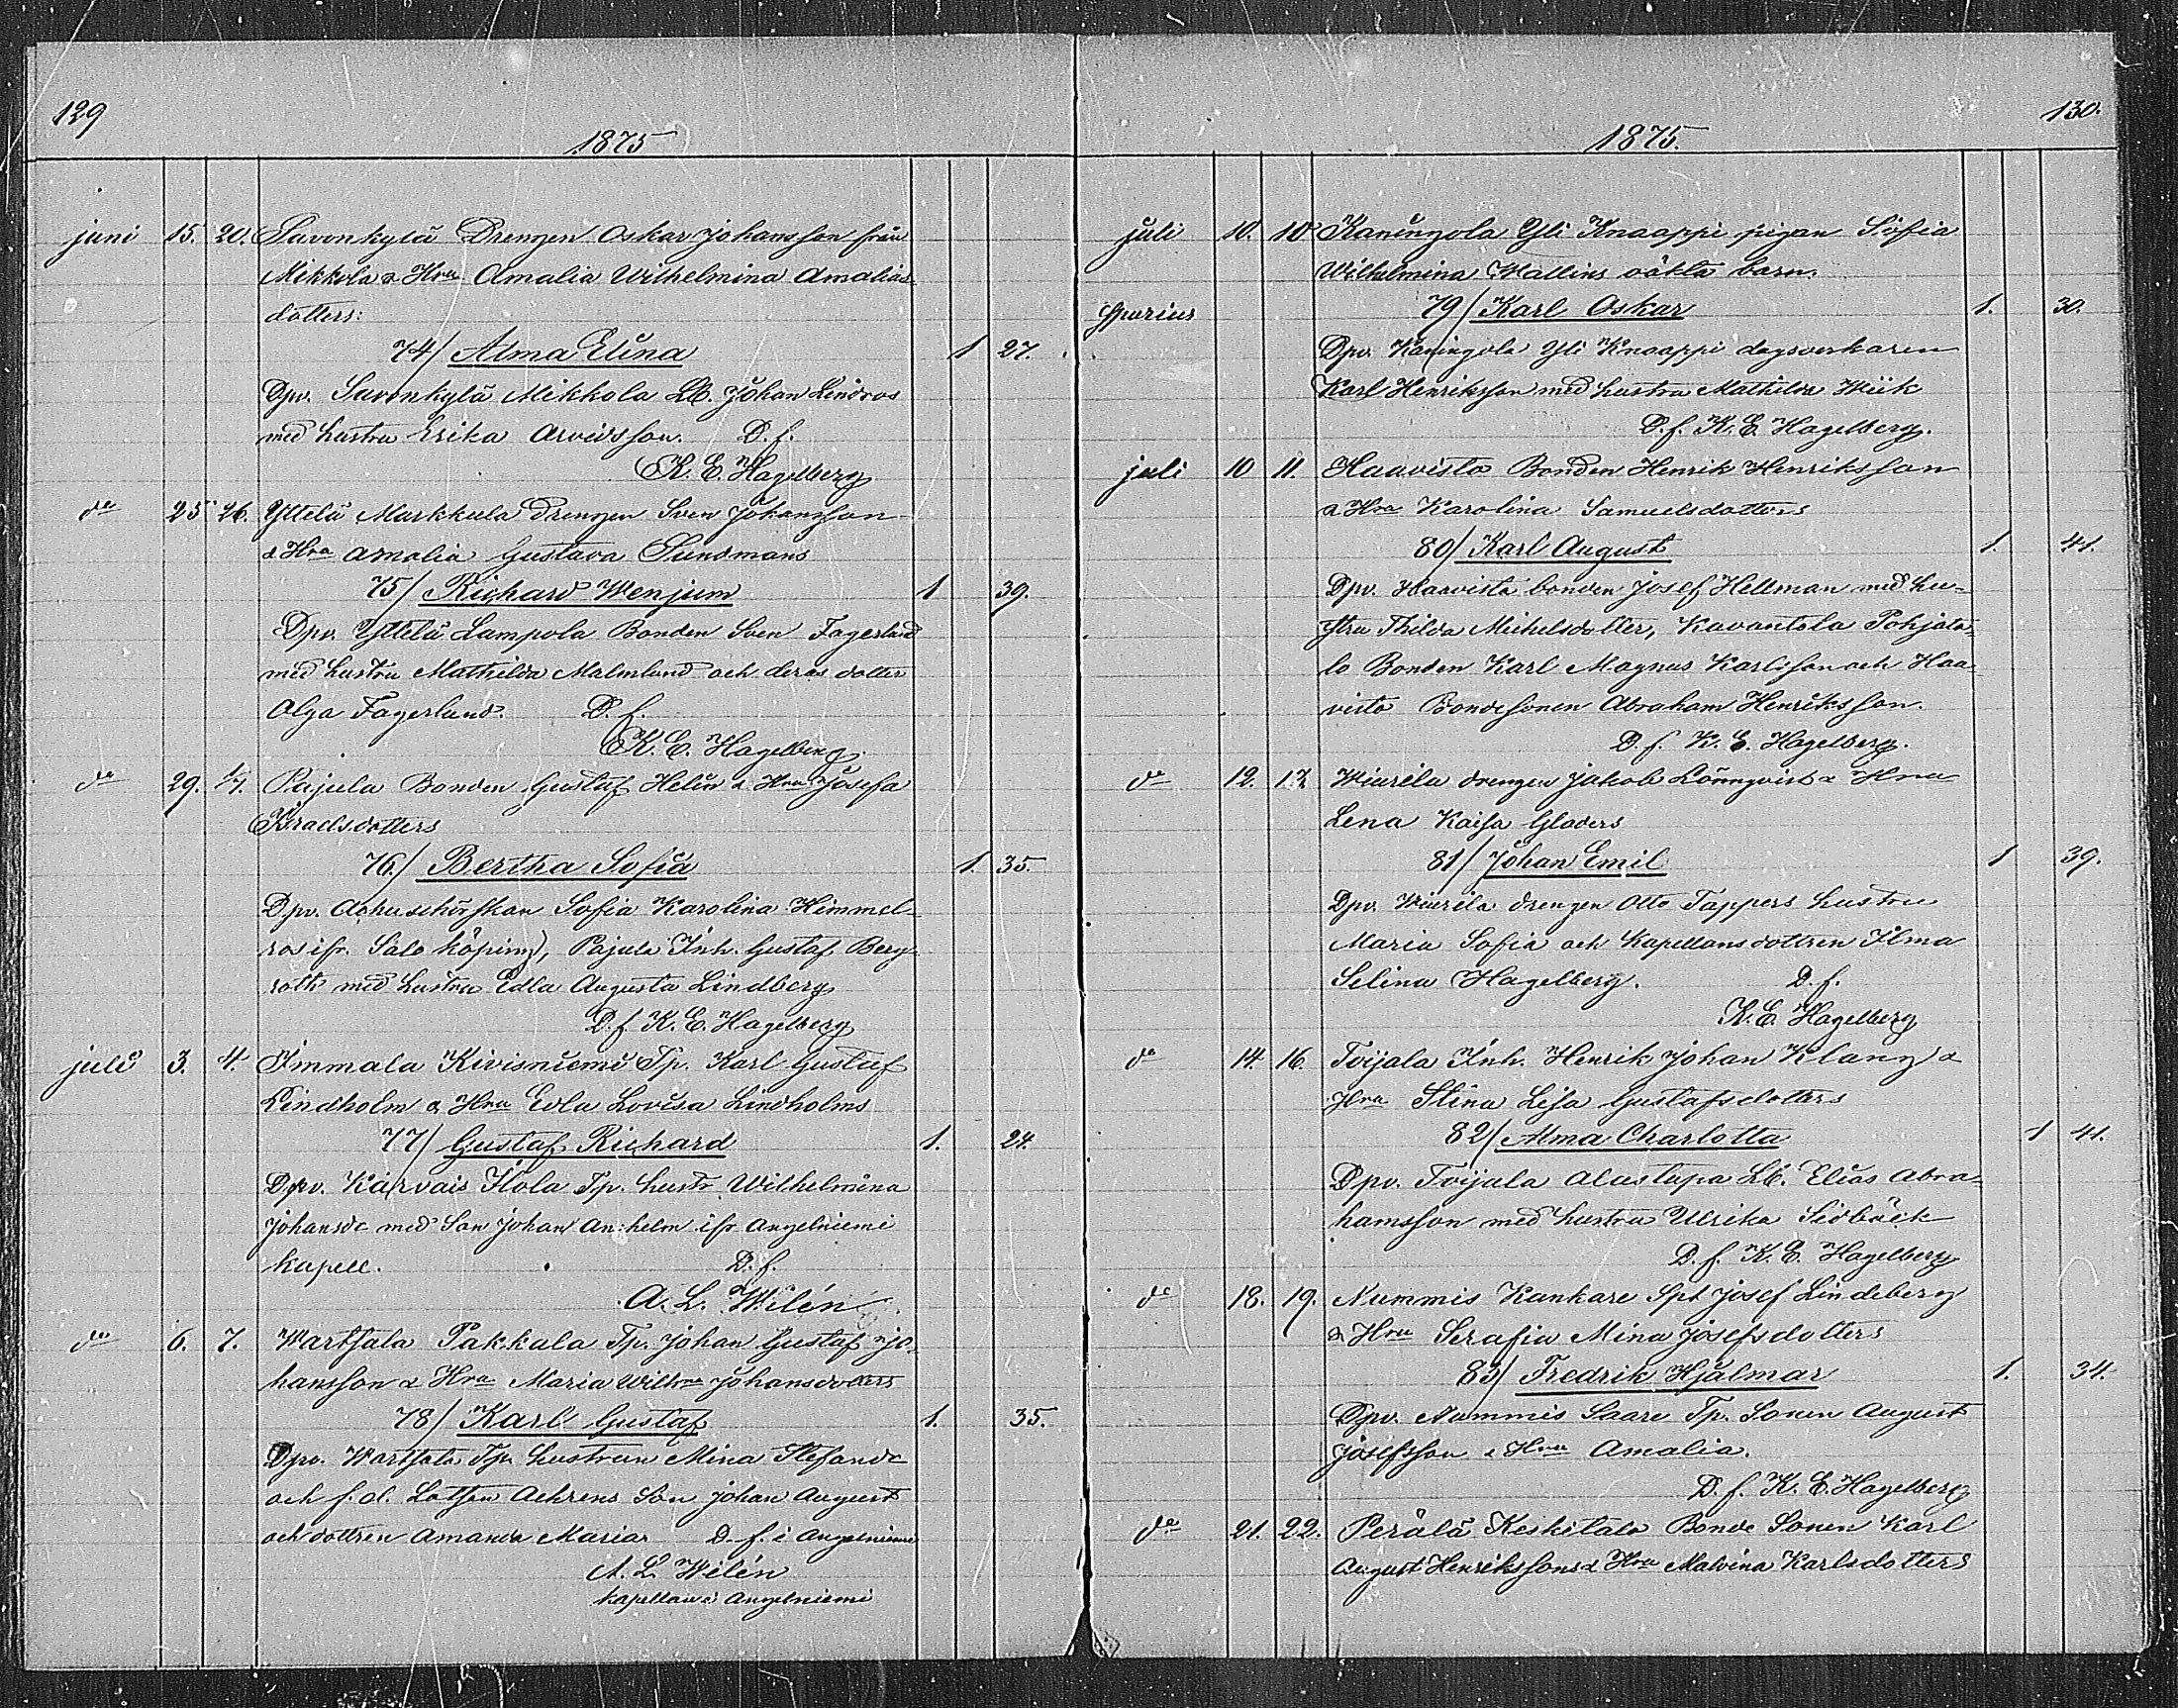 129
1875
juni 15. 20. Savonkylä Drengen Oskar Johansson från
Mikkola & Hru Amalia Wilhelmina Amalias-
dotters:
74/ Alma Elina 1 27.
Dpv. Savonkylä Mikkola LC. Johan Lindros
med hustru Erika Arvidsson. D.f.
K. E. Hagelberg
do 25 26. Yttelä Markkula Drengen Sven Johansson
& Hru Amalia Gustava Sundmans
75/ Richard Wenjum 1 39.
Dpv. Yttelä Lampola Bonden Sven Fagerlund
med hustru Mathilda Malmlund och deras dotter
Olga Fagerlund. D. f.
K. E. Hagelberg.
do 29. 1/7. Pajula Bonden Gustaf Helin & Hru Josefa
Israelsdotters
76./ Bertha Sofia 1. 35.
Dpv. Sofia Karolina Himmel-
ros ifr. Salo köping, Pajula Inh. Gustaf Berg-
roth med hustru Edla Augusta Lindberg
D.f K. E. Hagelberg
juli 3. 4. Immala Kivisniemi Tp. Karl Gustaf
Lindholm & Hru Edla Lovisa Lindholms
77/ Gustaf Richard 1. 24.
Dpv. Karvais Iløla Tp. hustr. Wilhelmina
Johansdr med Son Johan An:helm ifr Angelniemi
kapell. D.f.
A. L. Wilén
do 6. 7. Wartsala Pakkala Tp. Johan Gustaf Jo-
hansson & Hru Maria Wilhna Johansdotters
78/ Karl Gustaf 1. 35.
Dpv. Wartsala Tp. hustrun Mina Stefansdr
och f. d. Lotsen Achrens Son Johan August
och dottren Amanda Maria. D. f. i Angelniemi
A. L Wilén
kapellan i Angelniemi
130.
1875.
juli 10. 10 Kaningola Yli Knaappi pigan Sofia
Wilhelmina Wallins oäkta barn.
Spurius 79/ Karl Oskar 1. 30.
Dpv. Kaningola Yli Knaappi dagsverkaren
Karl Henriksson med hustru Mathilda Wiik
D.f. K. E. Hagelberg.
juli 10 11. Haavisto Bonden Henrik Henriksson
& Hru Karolina Samuelsdotters
80/ Karl August 1. 41.
Dpv. Haavisto bonden Josef Hellman med hu-
stru Thilda Michelsdotter, Kavantola Pohjata-
lo Bonden Karl Magnus Karlsson och Haa-
visto Bondesonen Abraham Henriksson.
D. f. K. E. Hagelberg.
do 12. 12 Wiurila drengen Jakob Lönnqvist & Hru
Lena Kaisa Gladers
81/ Johan Emil 1 39.
Dpv. Wiurila drengen Otto Tappers hustru
Maria Sofia och Kapellans dottren Ilma
Selina Hagelberg. D. f.
K. E. Hagelberg
do 14. 16. Toijala Inh. Henrik Johan Klang &
Hru Stina Lisa Gustafsdotters
82/ Alma Charlotta 1 41.
Dpv. Toijala Alastupa LC. Elias Abra-
hamsson med hustru Ulrika Siöbäck
D. f. K. E. Hagelberg
do 18. 19. Nummis Kankare Spt Josef Lindeberg
& Hru Serafia Mina Josefsdotters
83/ Fredrik Hjalmar 1. 34.
Dpv. Nummis Saare Tp. Sonen August
Josefsson & Hru Amalia.
D. f. K. E. Hagelberg
do 21. 22. Perälä Keskitalo Bonde Sonen Karl
August Henrikssons & Hru Malvina Karlsdotters